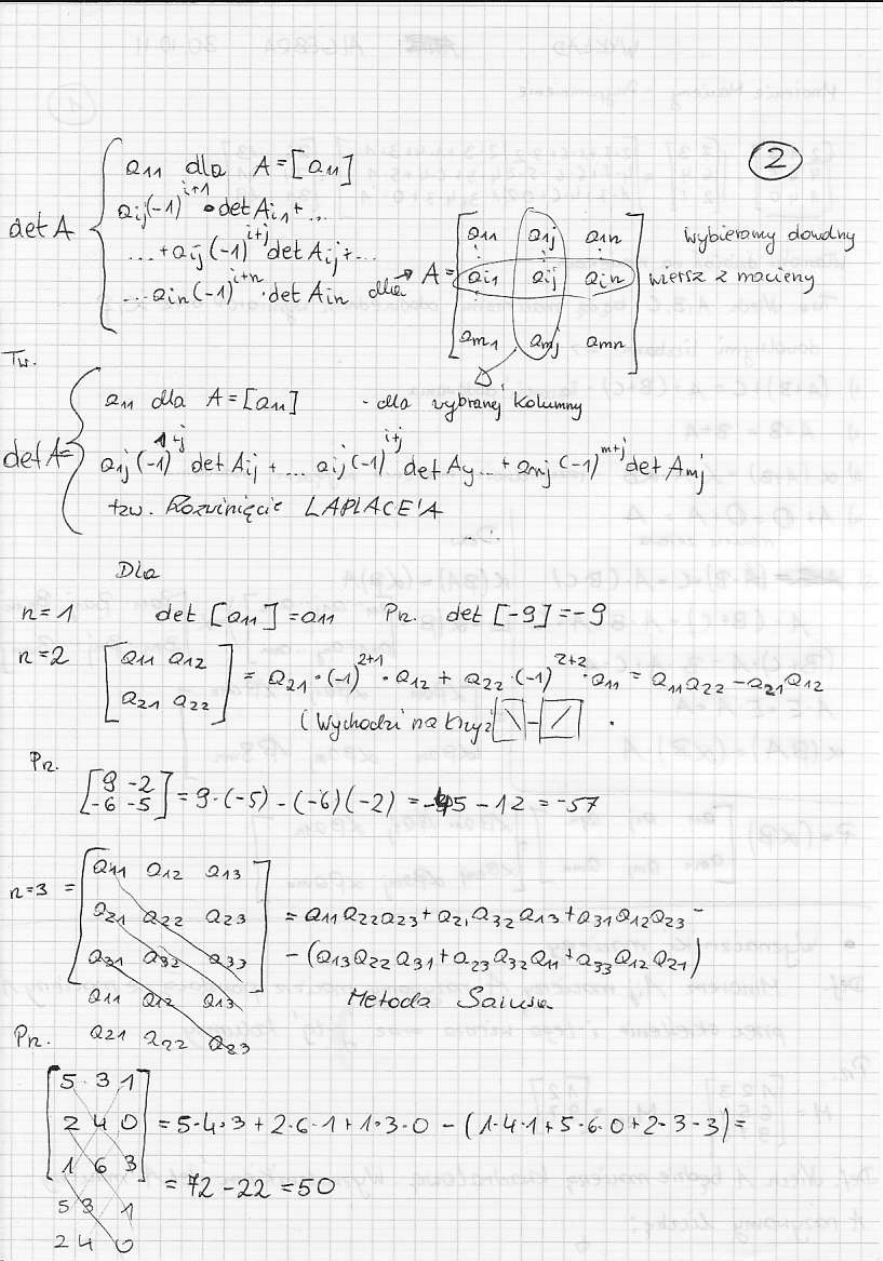 2
det A { a11 dla A = [a11]
aij(-1)^{i+1} · det Ai1 + ...
... + aij (-1)^{i+j} det Aij + ...
... ain (-1)^{i+n} · det Ain dla → A = [a11 a1j a1n
ai1 aij ain
am1 amj amn]
wybieramy dowolny
wiersz z macierzy
Tw.
det A = { a11 dla A = [a11] - dla wybranej kolumny
a1j (-1)^{1+j} det Aij + ... aij (-1)^{i+j} det Aij ... + amj (-1)^{m+j} det Amj
tzw. Rozwinięcie LAPLACE'A
Dla
n=1 det [a11] = a11 Prz. det [-9] = -9
n=2 [a11 a12
a21 a22] = a21 · (-1)^{2+1} · a12 + a22 · (-1)^{2+2} · a11 = a11a22 - a21a12
(Wychodzi na krzyż [\] - [/] .
Prz.
[9 -2
-6 -5] = 9·(-5) - (-6)(-2) = -45 - 12 = -57
n=3 = [a11 a12 a13
a21 a22 a23
a31 a32 a33]
a11 a12 a13
a21 a22 a23
= a11a22a23 + a21a32a13 + a31a12a23 -
- (a13a22a31 + a23a32a11 + a33a12a21)
Metoda Sarusa
Prz.
[5 3 1
2 4 0
1 6 3]
5 3 1
2 4 0
= 5·4·3 + 2·6·1 + 1·3·0 - (1·4·1 + 5·6·0 + 2·3·3) =
= 72 - 22 = 50